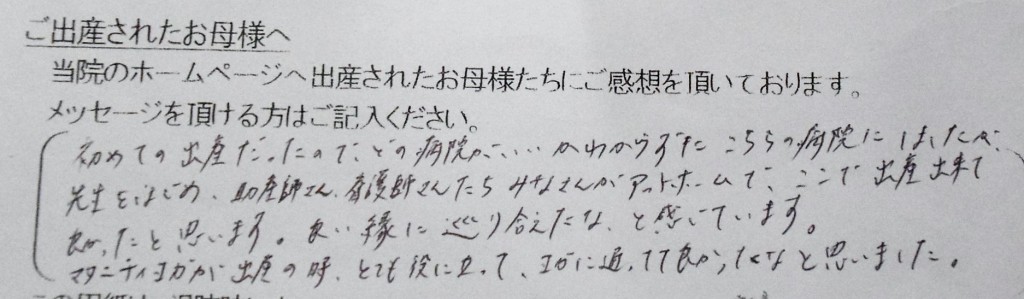 ご出産されたお母様へ
当院のホームページへ出産されたお母様たちにご感想を頂いております。
メッセージを頂ける方はご記入ください。
初めての出産だったので、どの病院がいいかわからずに こちらの病院にしましたが、
先生をはじめ、助産師さん、看護師さんたち みなさんがアットホームで、ここで出産出来て
良かったと思います。良い縁に巡り合えたな、と感じています。
マタニティヨガが出産の時、とても役に立って、ヨガに通ってて良かったなと思いました。